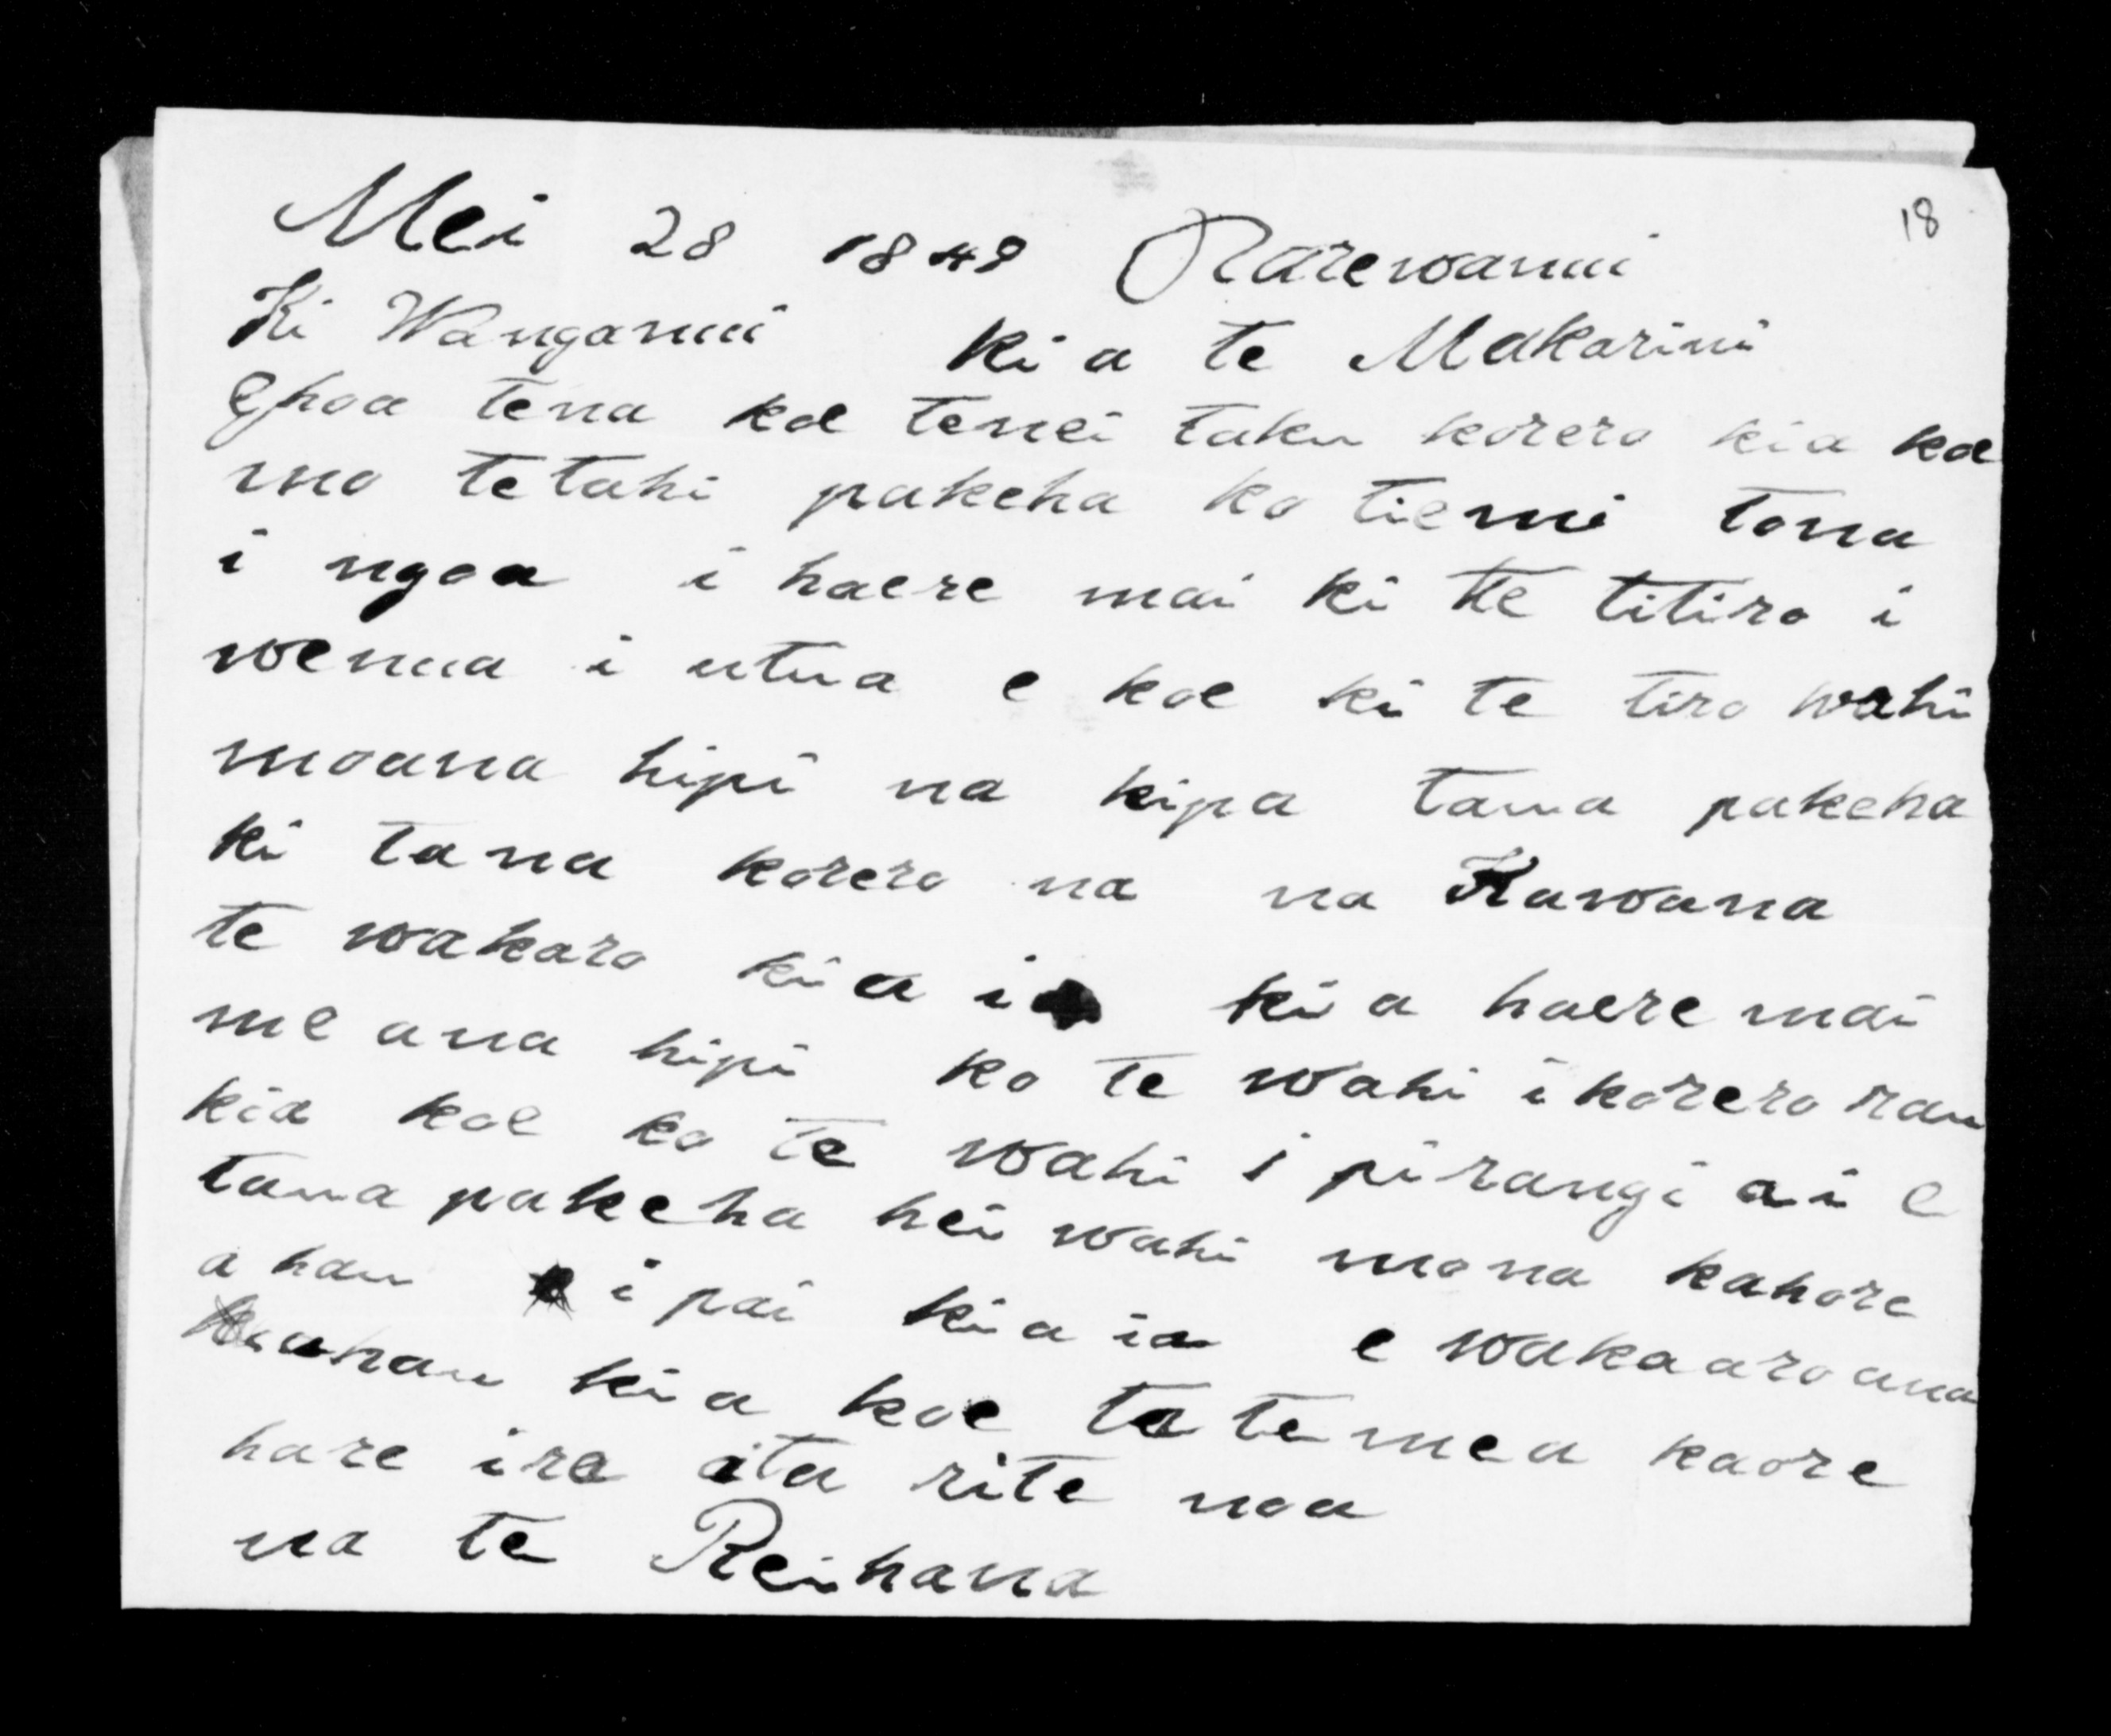 18
Mei 28 1848 Rarewanui
Ki Wanganui kia te Makarini
E hoa tena koe tenei taku korero kia koe
mo tetahi pakeha ko tiemi tona
i ngoa i haere mai ki te titiro i
wenua i utua e koe ki te tiro wahi
moana hipi na kipa taua pakeha
ki tana korero na na Kawana
te wakaro kia ia kia haere mai
me ana hipi ko te wahi i korero rau
kia koe ko te wahi i pirangi ai e
taua pakeha hei wahi mona kahore
ahau i pai kia ia e wakaaro ana
ahau kia koe ta te mea kaore
hare ire ata rite noa
na te Reihana